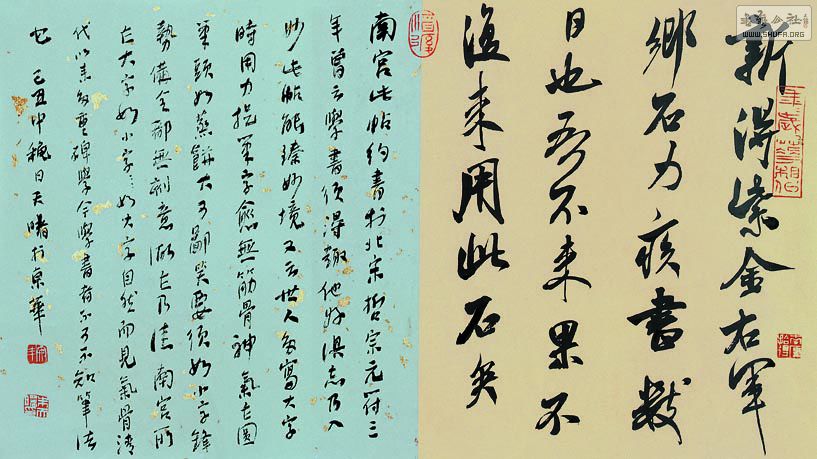 新得紫金右軍
鄉石力疾書數
日也吾不來果不
復來用此石矣
南宮此帖約書於北宋哲宗元符三
年曾云學書須得趣他好俱忘乃入
妙此帖能臻妙境又云世人多寫大字
時用力捉筆字愈無筋骨神氣在圓
筆頭如蒸餅大可鄙笑要須如小字鋒
勢備全都無刻意做在乃佳南宮所
在大字如小字:如大字自然而見氣骨清
代以來多重碑學今學書者不可不知筆法
也 己丑中穐日天曙於京華
书法公社
WWW.SHUFA.ORG